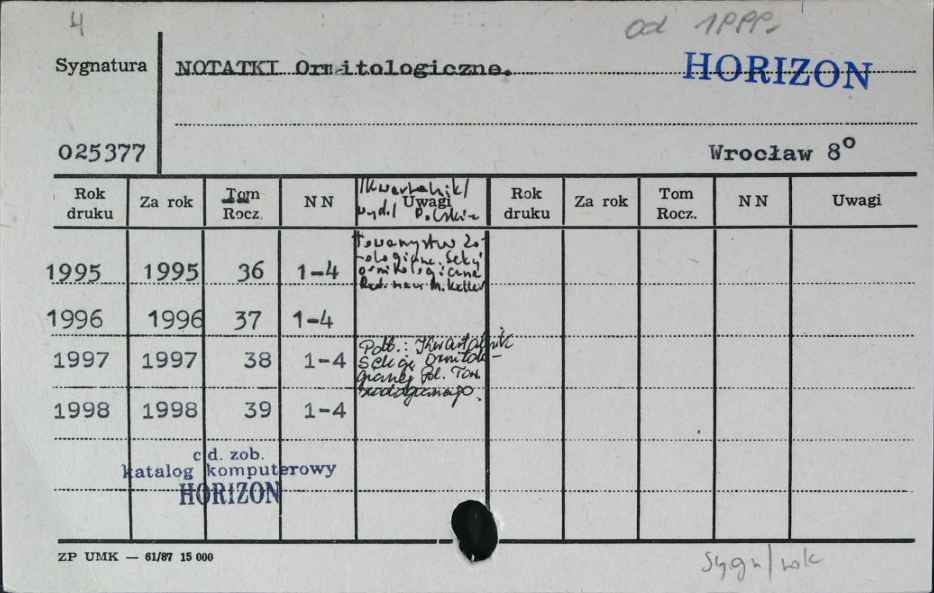 4
od 1999.
Sygnatura NOTATKI Ornitologiczne. HORIZON
025377 Wrocław 8°
Rok druku Za rok Tom Rocz. NN Uwagi Rok druku Za rok Tom Rocz. NN Uwagi
/Kwartalnik/
wyd./ Polskie
Towarzystw Zo-
ologiczne. Sekcj
ornitologiczna
Red. nacz. M. Keller
1995 1995 36 1-4
1996 1996 37 1-4
1997 1997 38 1-4
Podt.: Kwartalnik
Sekcji Ornitolo-
gicznej Pol. Tow.
Zoologicznego.
1998 1998 39 1-4
cd. zob.
katalog komputerowy
HORIZON
ZP UMK — 61/87 15 000
Sygn/rok